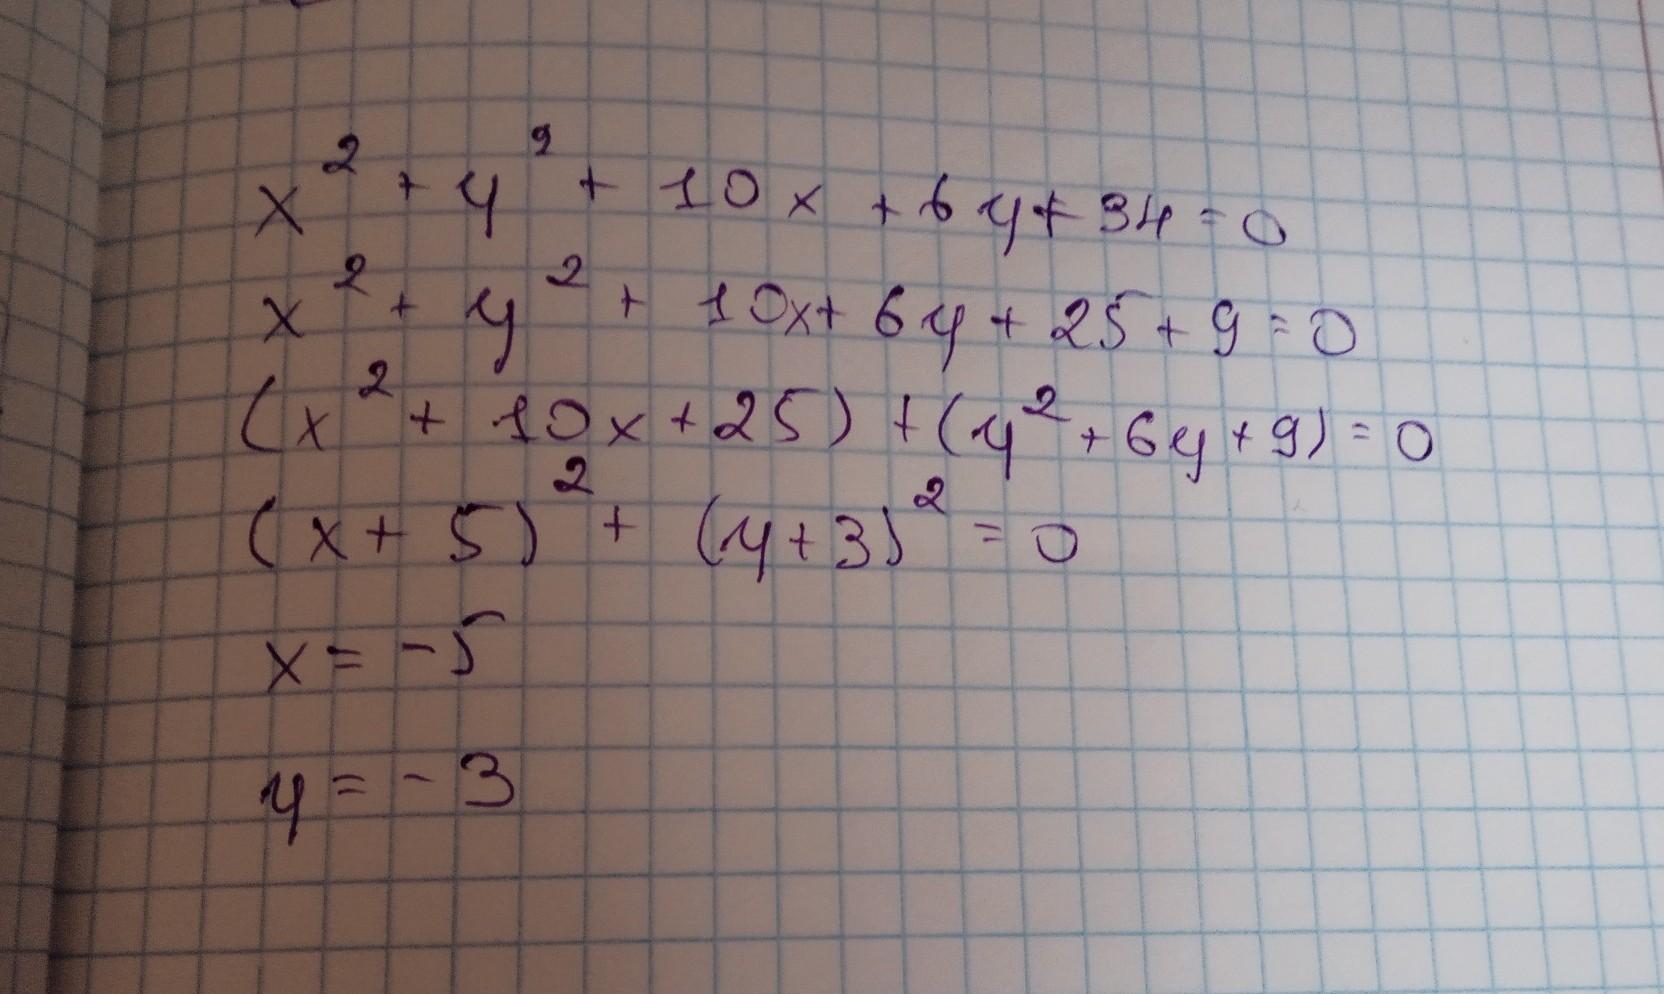 x² + y² + 10x + 6y + 34 = 0
x² + y² + 10x + 6y + 25 + 9 = 0
(x² + 10x + 25) + (y² + 6y + 9) = 0
(x + 5)² + (y + 3)² = 0
x = -5
y = -3